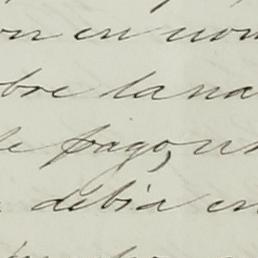 on en nom
bre lana
de pago, un
debia en